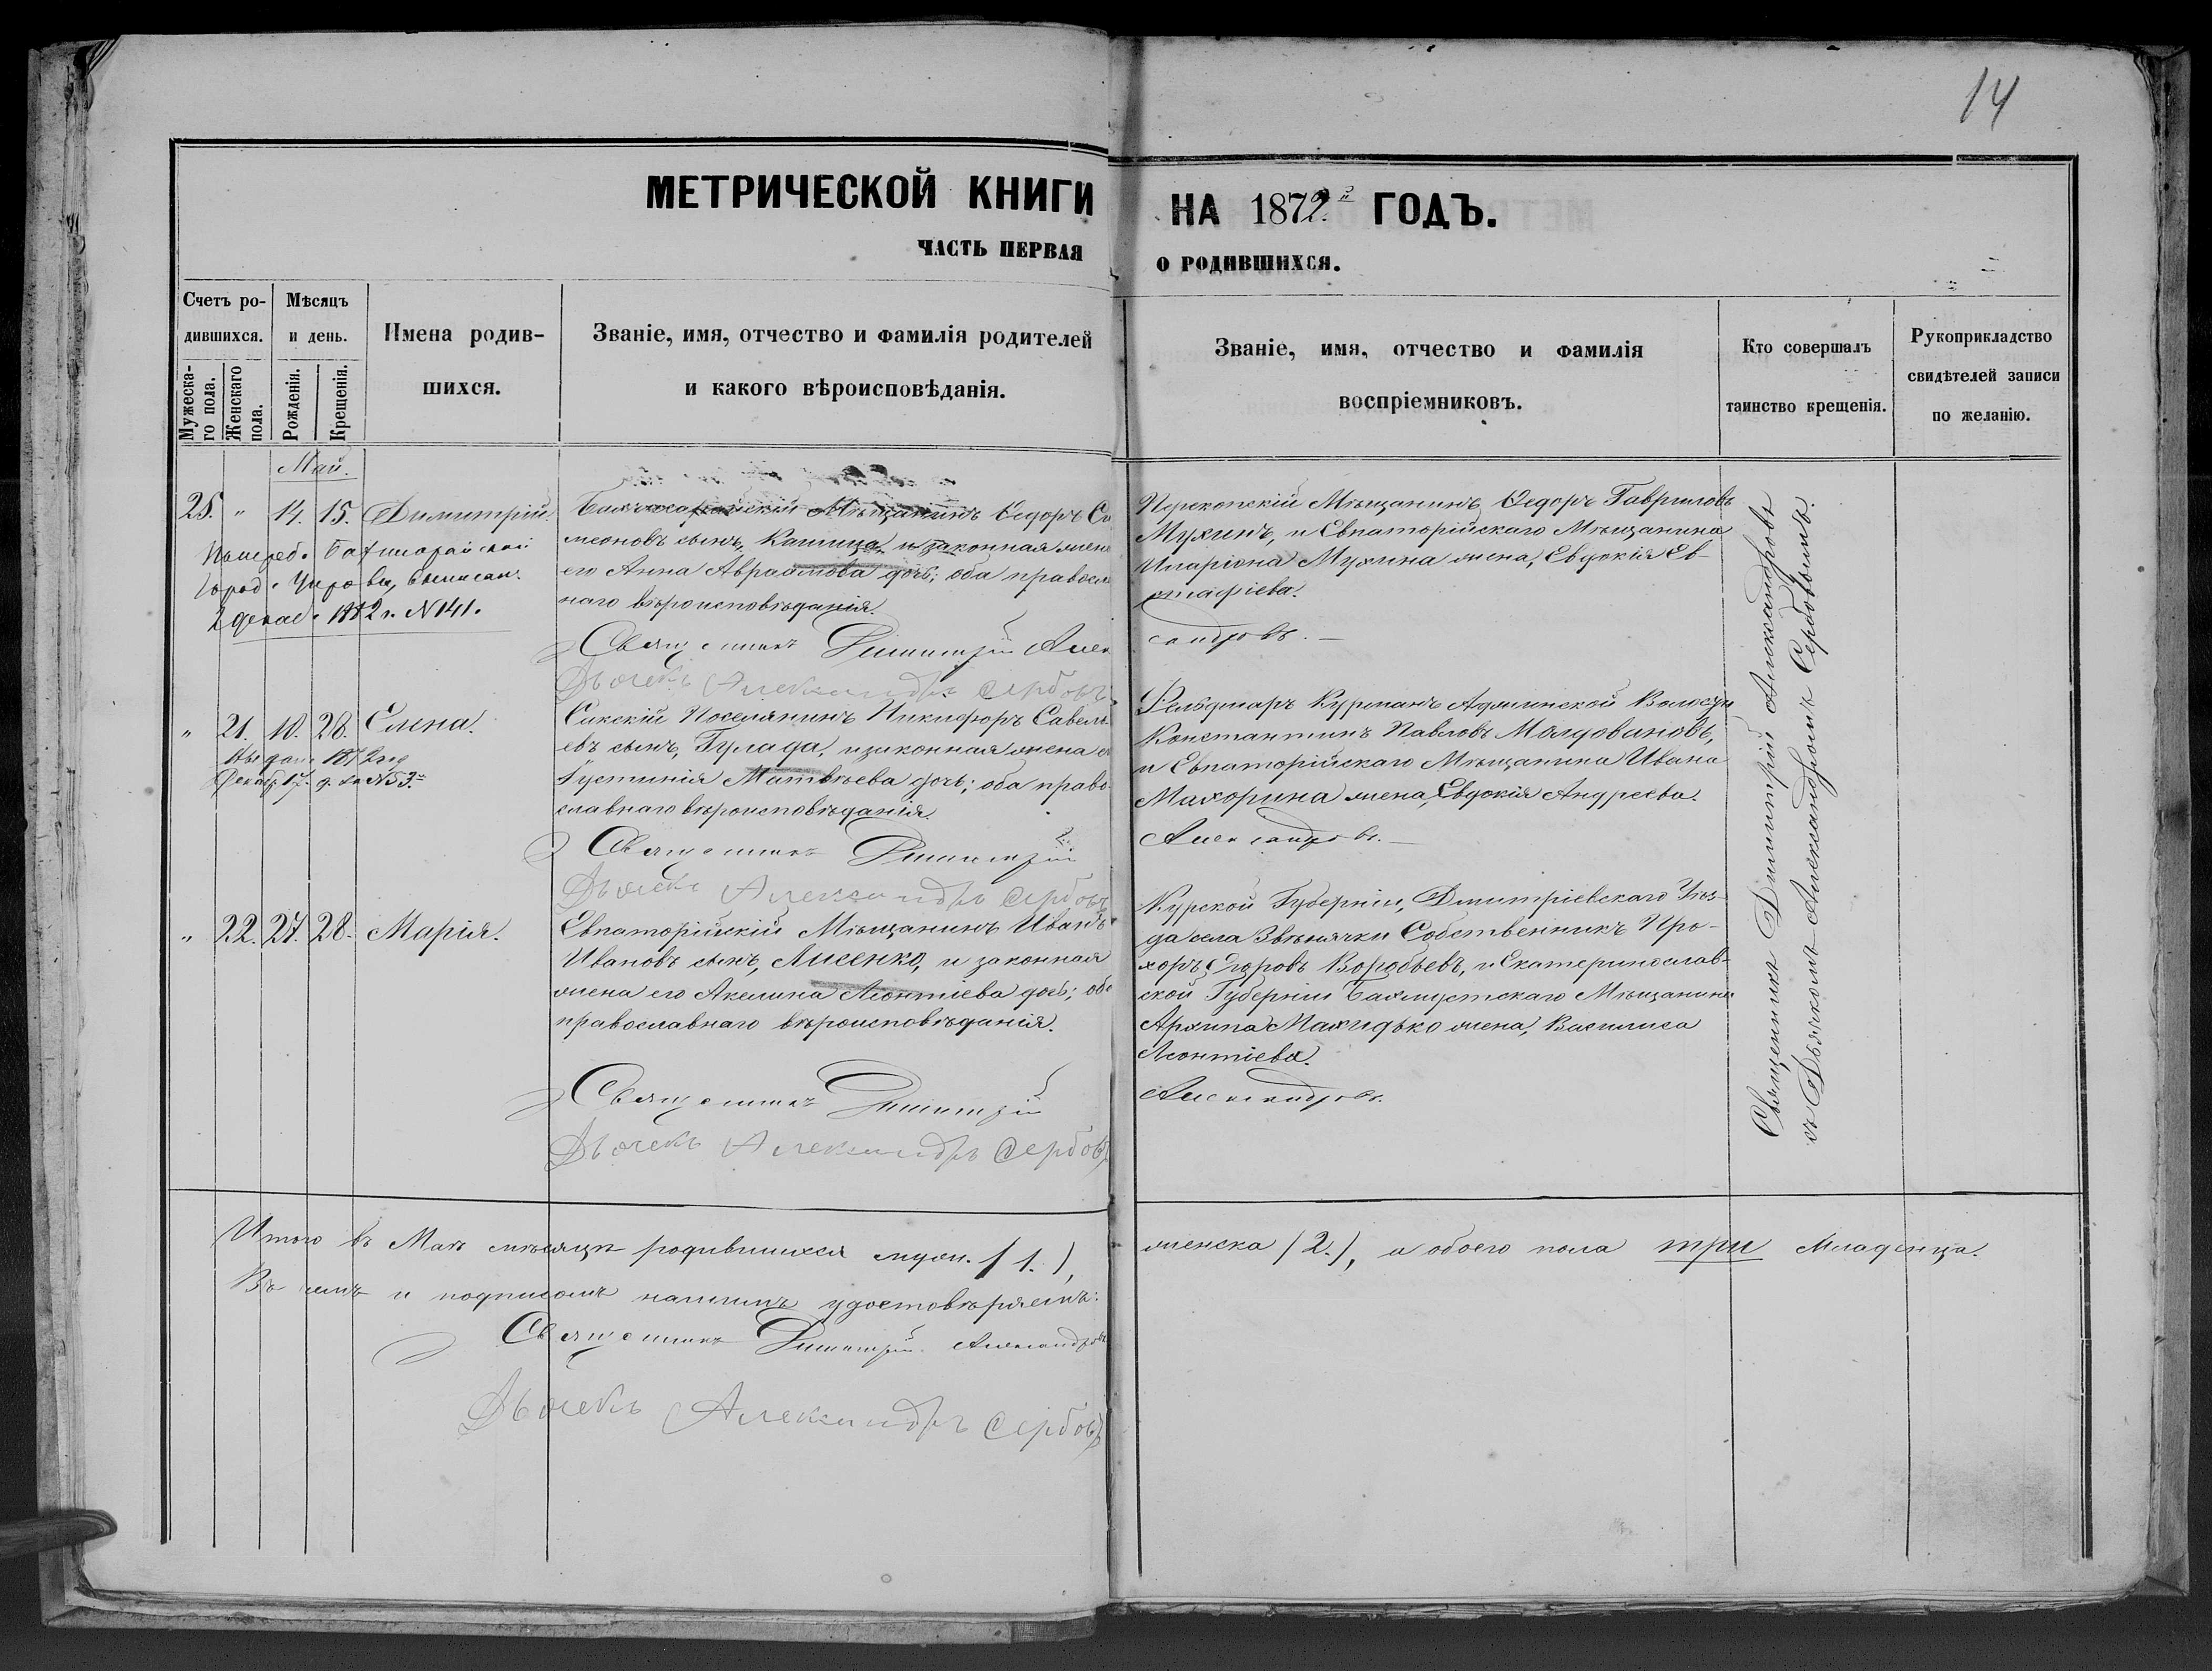 14
МЕТРИЧЕСКОЙ КНИГИ НА 1872й ГОДЪ.
ЧАСТЬ ПЕРВАЯ О РОДИВШИХСЯ.
Счетъ ро-
дившихся.
Мужеска-
го пола.
Женскаго
пола.
Мѣсяцъ
и день.
Рожденія.
Крещенія.
Имена родив-
шихся.
Званіе, имя, отчество и фамилія родителей
и какого вѣроисповѣданія.
Званіе, имя, отчество и фамилія
воспріемниковъ.
Кто совершалъ
таинство крещенія.
Рукоприкладство
свидѣтелей записи
по желанію.
Май.
25. " 14. 15. Димитрій.
город. Управы, выписан.
2 декаб. 1882 г. N 141.
Бахчисарайскій Мѣщанинъ Ѳедоръ Си
меоновъ сынъ, Капица, и законная жена
его Анна Авраамова дочь; оба правосла
наго вѣроисповѣданія.
Священникъ Димитрій Алек
сандровъ.
Дьячекъ Александръ Сербовъ
Перекопскій Мѣщанинъ Ѳедоръ Гавриловъ
Мухинъ, и Евпаторійскаго Мѣщанина
Иларіона Мухина жена, Евдокія Ев-
стафіева.
" 21. 10. 28. Елена.
Выдана 1872 год
Декаб. 17 д. за N 53.
Сакскій Поселянинъ Никифоръ Савель-
евъ сынъ, Гулада, и законная жена е
Густинія Матвѣева дочь; оба право-
славнаго вѣроисповѣданія.
Священникъ Димитрій
Александровъ.
Дьячекъ Александръ Сербовъ
Фельдшаръ Курманъ Аджинской Волости
Константинъ Павловъ Малдовановъ,
и Евпаторійскаго Мѣщанина Ивана
Махорина жена, Евдокія Андреева.
" 22. 27. 28. Марія.
Евпаторійскій Мѣщанинъ Иванъ
Ивановъ сынъ, Лисенко, и законная
жена его Акелина Леонтіева дочь; обо
православнаго вѣроисповѣданія.
Священникъ Димитрій
Александровъ.
Дьячекъ Александръ Сербовъ
Курской Губерніи, Дмитріевскаго Уѣз-
да села Звѣнячки Собственникъ Про-
хоръ Егоровъ Воробьевъ, и Екатеринослав-
ской Губерніи Бахмутскаго Мѣщанина
Архипа Махидько жена, Василиса
Леонтіева.
Священникъ Димитрій Александровъ
съ Дьячкомъ Александромъ Сербовымъ.
Итого въ Маѣ мѣсяцѣ родившихся муж. (1.), женска (2.), а обоего пола три Младенца.
Въ чемъ и подписомъ нашимъ удостовѣряемъ:
Священникъ Димитрій Александровъ
Дьячекъ Александръ Сербовъ